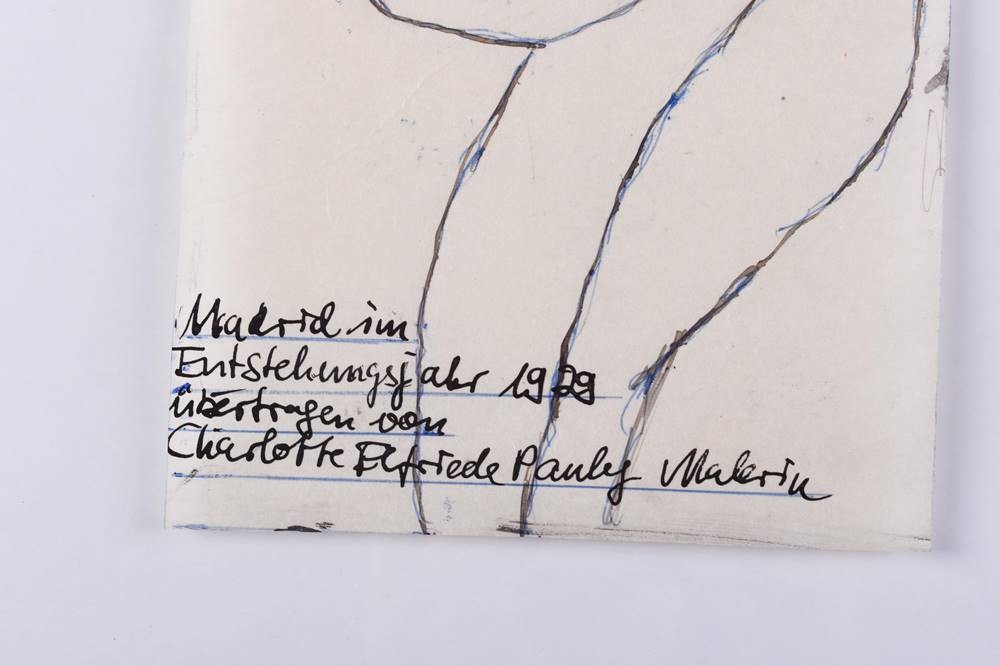 Madrid im
Entstehungsjahr 1929
übertragen von
Charlotte Elfriede Pauly Malerin